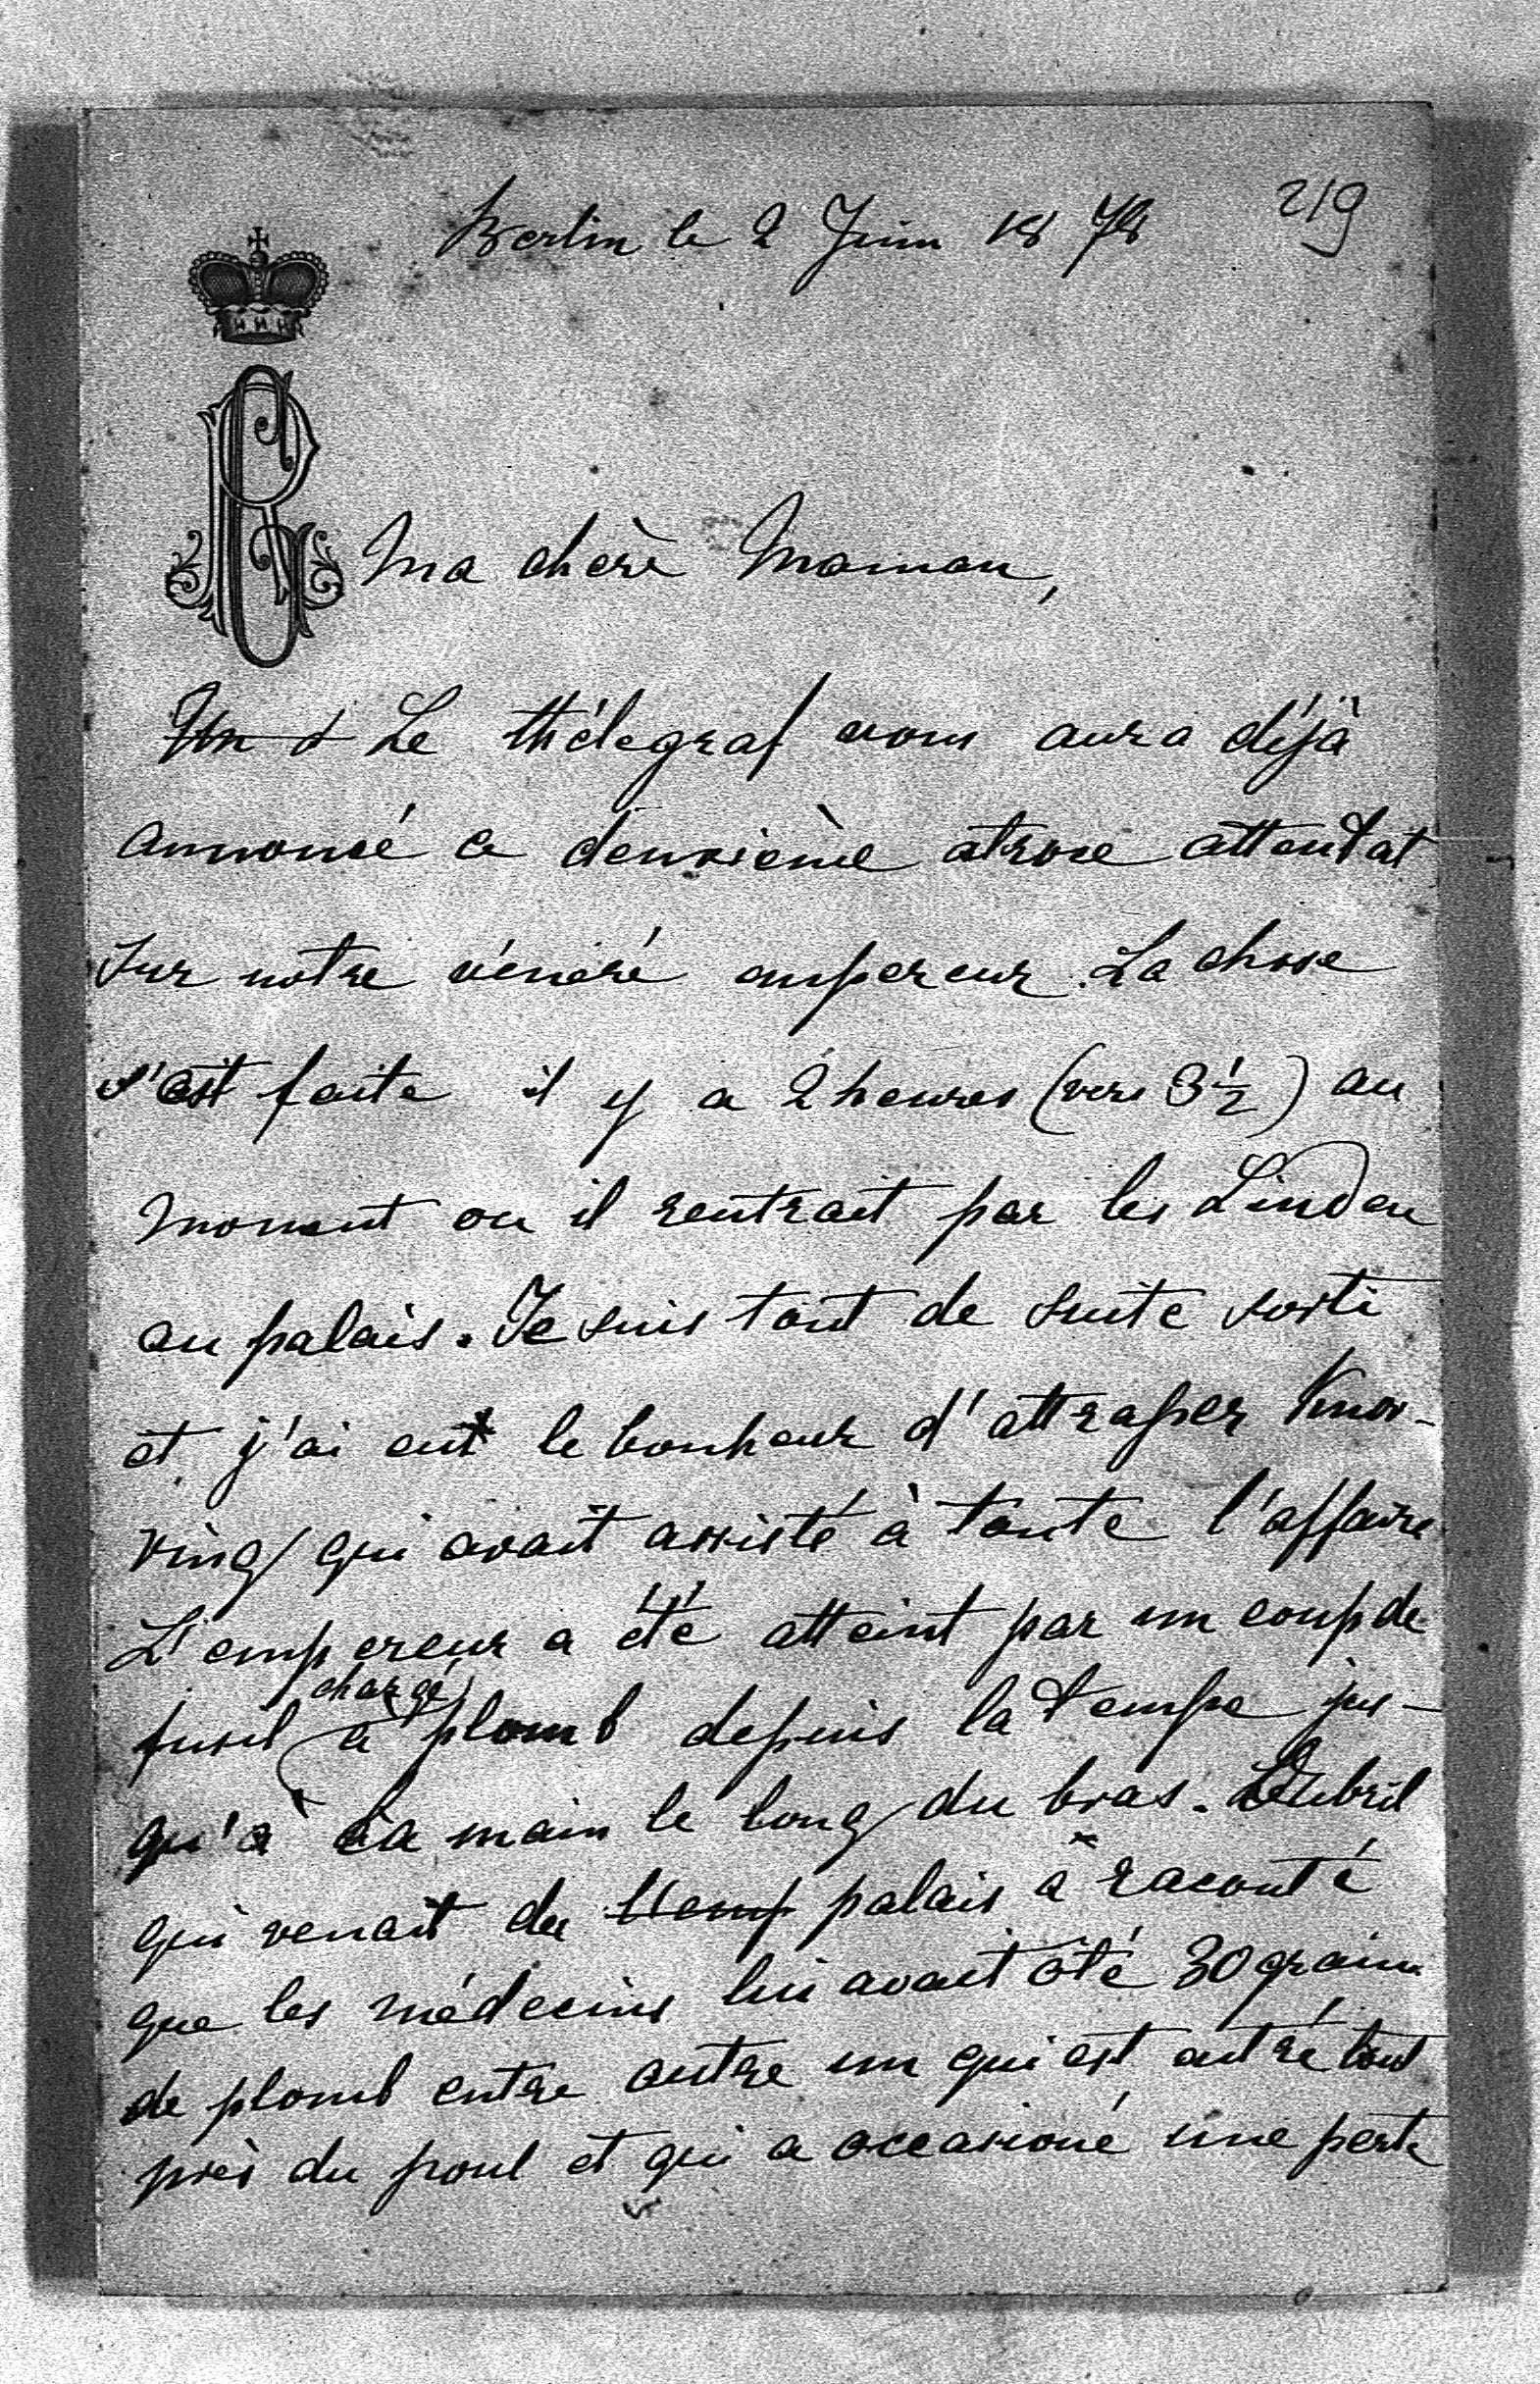 219
Berlin le 2 Juin 1878
Ma chère Maman,
Un d Le thélegraf vous aura déjà
annoncé ce deuxième atroce attentat
sur notre vénéré empereur. La chose
s'est faite il y a 2 heures (vers 3 1/2) au
moment ou il rentrait par les Linden
au palais. Je suis tout de suite sorti
et j'ai eut le bonheur d'attraper Knor-
ring qui avait assisté à toute l'affaire
L'empereur a été atteint par un coup de
fusil chargé à plomb depuis la tempe jus-
qu'à la main le long du bras. Oubril
qui venait du l'emp palais a raconté
que les médecins lui avait ôté 30 grains
de plomb entre autre un qui est entré tout
près du poul et qui a occasioné une perte